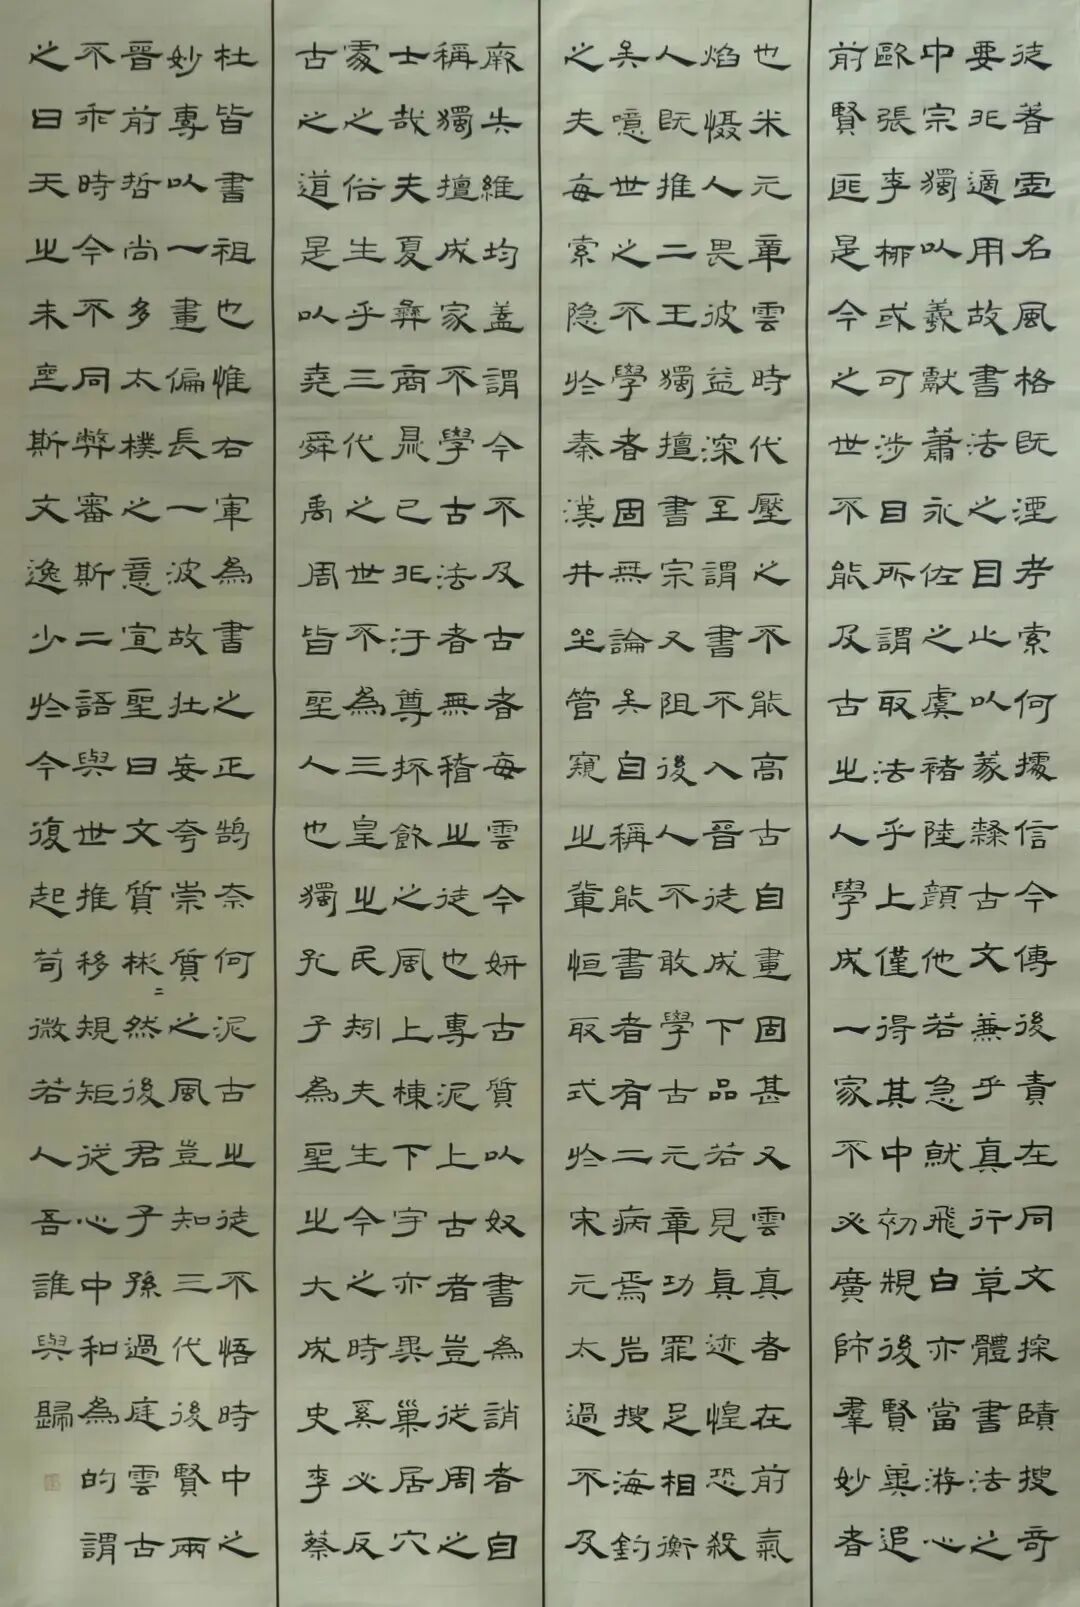 徒著虛名風格既湮考索何據信今傳後責在同文探賾搜奇
要非適用故書法之目止以篆隸古文兼乎真行草體書法之
中宗獨以羲獻蕭永佐之虞褚陸顏他若急就飛白亦當游心
歐張李柳或可涉目所謂取法乎上僅得其中初規後賢冀追
前賢匪是今之世不能及古之人學成一家不必廣師羣妙者
也米元章雲時代壓之不能高古自畫固甚又雲真者在前氣
焰慑人畏彼益深至謂書不入晉徒成下品若見真迹惶恐殺
人既推二王獨擅書宗又阻後人不敢學古元章功罪足相衡
吴噫世之不學者固無論吴自稱能書者有二病焉岩搜海釣
之夫每索隐於秦漢井坐管窺之輩恒取式於宋元太過不及
厥失維均盖謂今不及古者每雲今妍古質以奴書為誚者自
稱獨擅成家不學古法者無稽之徒也專泥上古者豈從周之
士哉夫夏彝商鼎已非汙尊抔飲之風上棟下宇亦異巢居穴
豪之俗生乎三代之世不為三皇之民矧夫生今之時奚必反
古之道是以堯舜禹周皆聖人也獨孔子為聖之大成史李蔡
杜皆書祖也惟右軍為書之正鵠奈何泥古之徒不悟時中之
妙專以一畫偏長一波故壯妄夸崇質之風豈知三代後賢兩
晉前哲尚多太樸之意宣聖曰文質彬二然後君子孫過庭雲古
不乖時今不同弊審斯二語與世推移規矩從心中和為的謂
之曰天之未喪斯文逸少於今復起苟微若人吾誰與歸